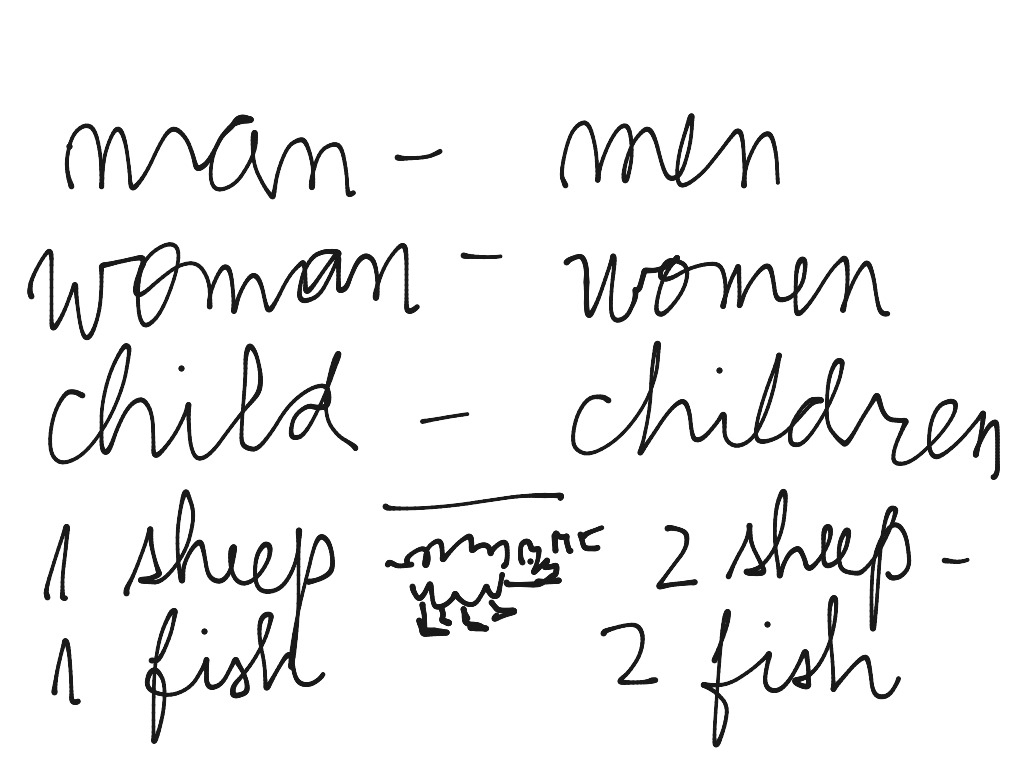 man - men
woman - women
child - children
1 sheep 2 sheep -
1 fish 2 fish